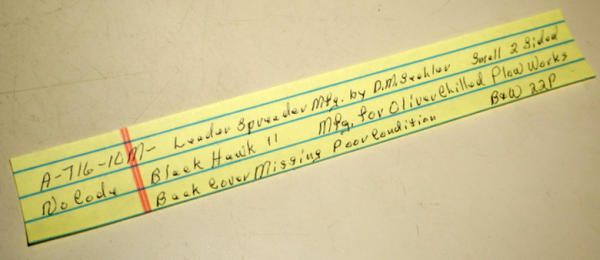 A-716-10M- Leader Spreader Mfg. by D.M. Sechler Small 2 Sided
No Code Black Hawk 11 Mfg. for Oliver Chilled Plow Works
Back Cover Missing Poor Condition B&W 22P